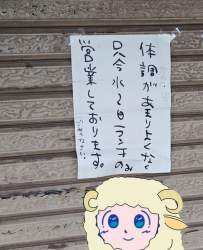 体調があまりよくなく
只今水〜日ランチのみ
営業しております。
ごめんなさい…